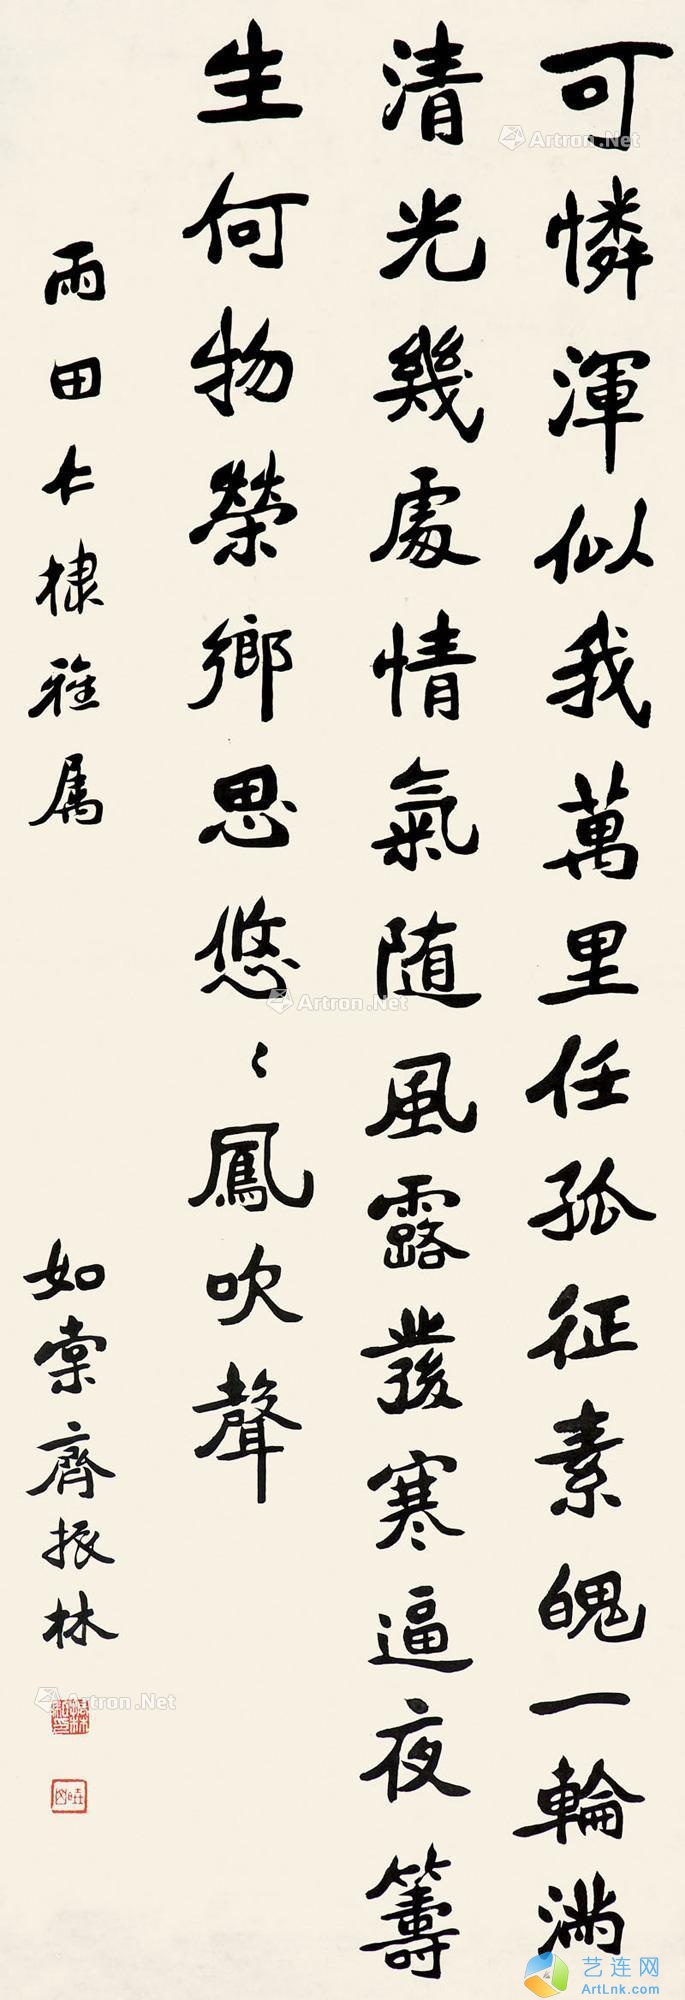 可憐渾似我萬里任孤征素魄一輪滿
清光幾處情氣隨風露發寒逼夜籌
生何物榮鄉思悠〻鳳吹聲
雨田仁棣雅属
如棠齊振林
Artron.Net
Artron.Net
Artron.Net
艺连网
ArtLnk.com